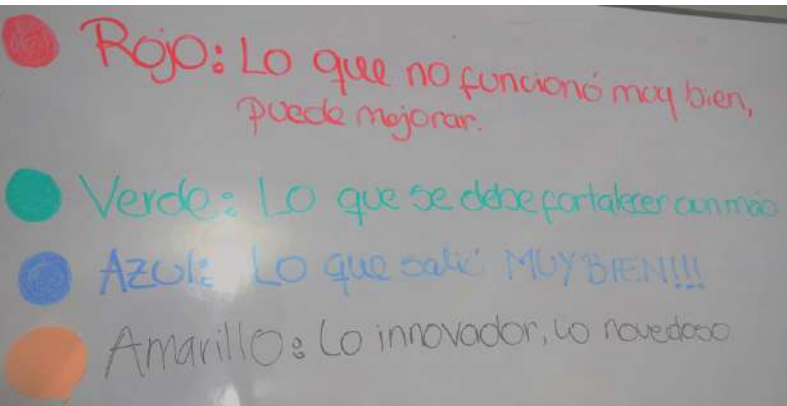 Rojo: Lo que no funcionó muy bien,
puede mejorar.
Verde: Lo que se debe fortalecer aun más
Azul: Lo que salió MUY BIEN!!!
Amarillo: Lo innovador, lo novedoso